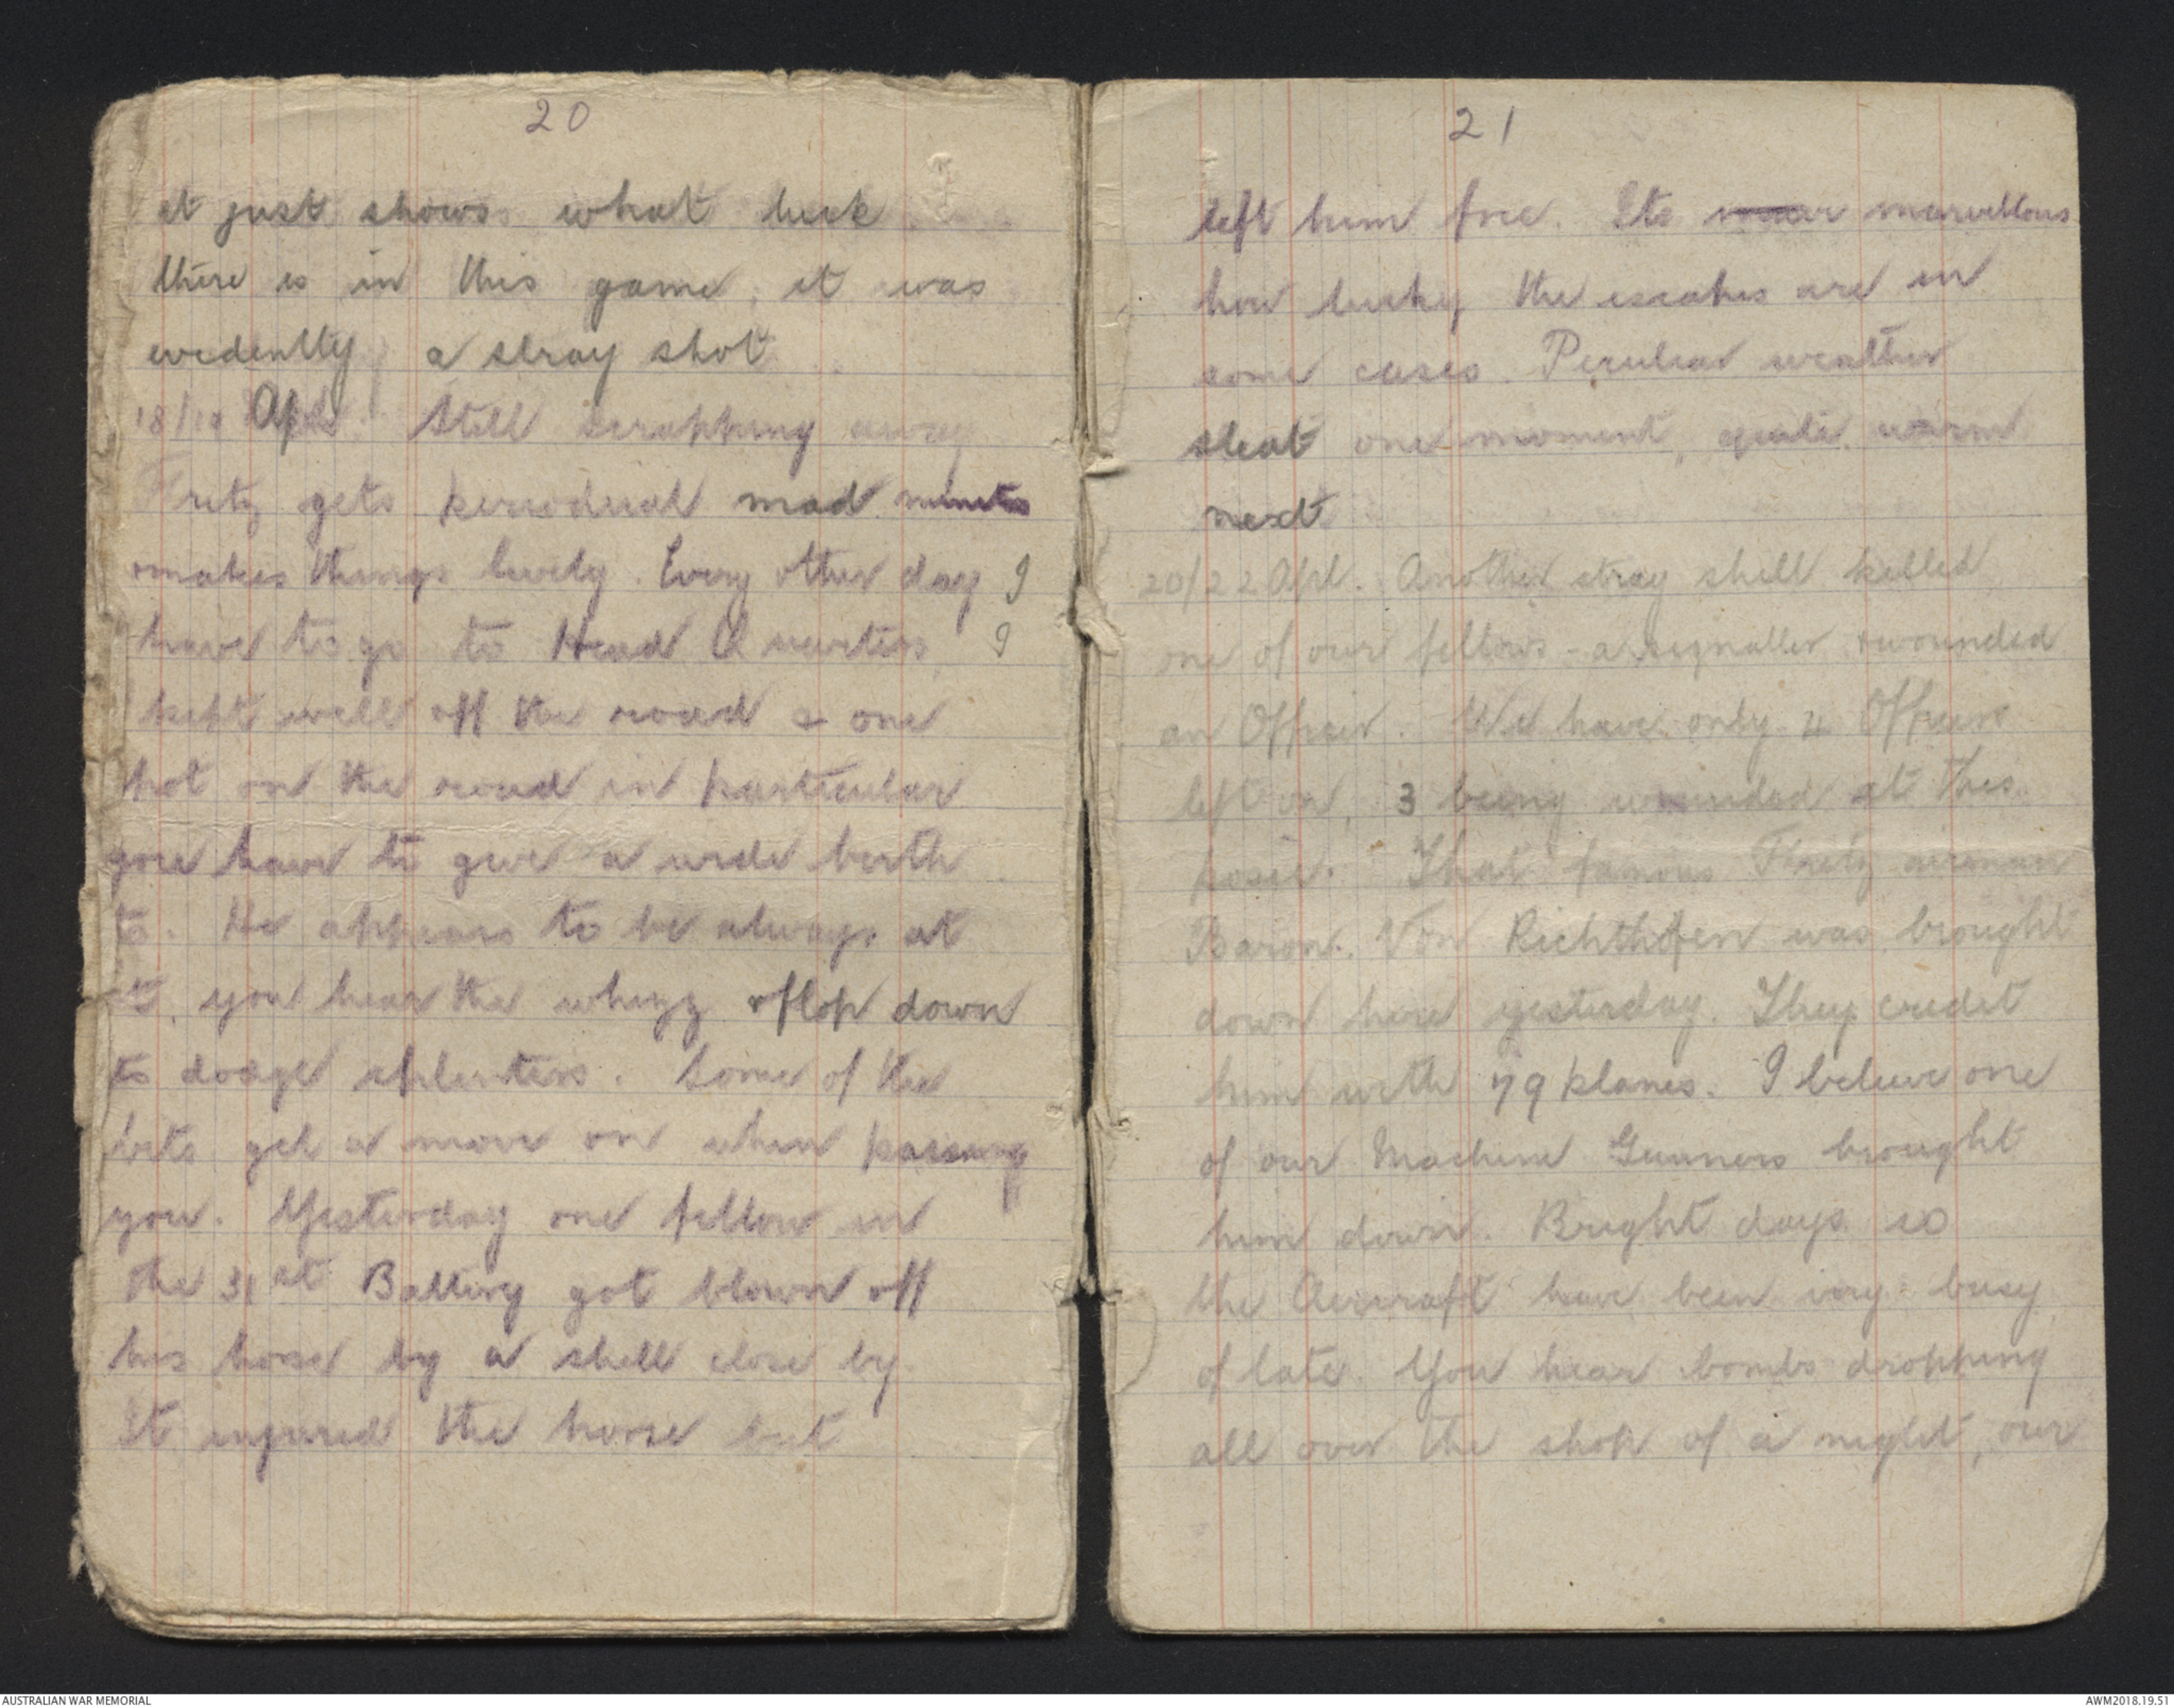 20
it just shows what luck
there is in this game, it was
evidently a stray shot
18/19 Apl. Still scrapping away
Fritz gets periodical mad minutes
makes things lively. Every other day I
have to go to Head Quarters, I
kept well off the road & one
hot on the road in particular
you have to give a wide berth
to. He appears to be always at
it, you hear the whizz & flop down
to dodge splinters. Some of the
bits get a move on when passing
you. Yesterday one fellow in
the 31st Battery got blown off
his horse by a shell close by.
It injured the horse but
21
left him free. Its marvellous
how lucky the escapes are in
some cases. Peculiar weather
sleat one moment, quite warm
next
20/22 Apl. Another stray shell killed
one of our fellows - a signaller & wounded
an Officer. We have only 4 Officers
left on, 3 being wounded at this
posie. That famous Fritz airman
Baron. Von Richthofen was brought
down here yesterday. They credit
him with 79 planes. I believe one
of our Machine Gunners brought
him down. Bright days so
the Aircraft have been very busy
of late. You hear bombs dropping
all over the shop of a night, our
AUSTRALIAN WAR MEMORIAL
AWM2018.19.51